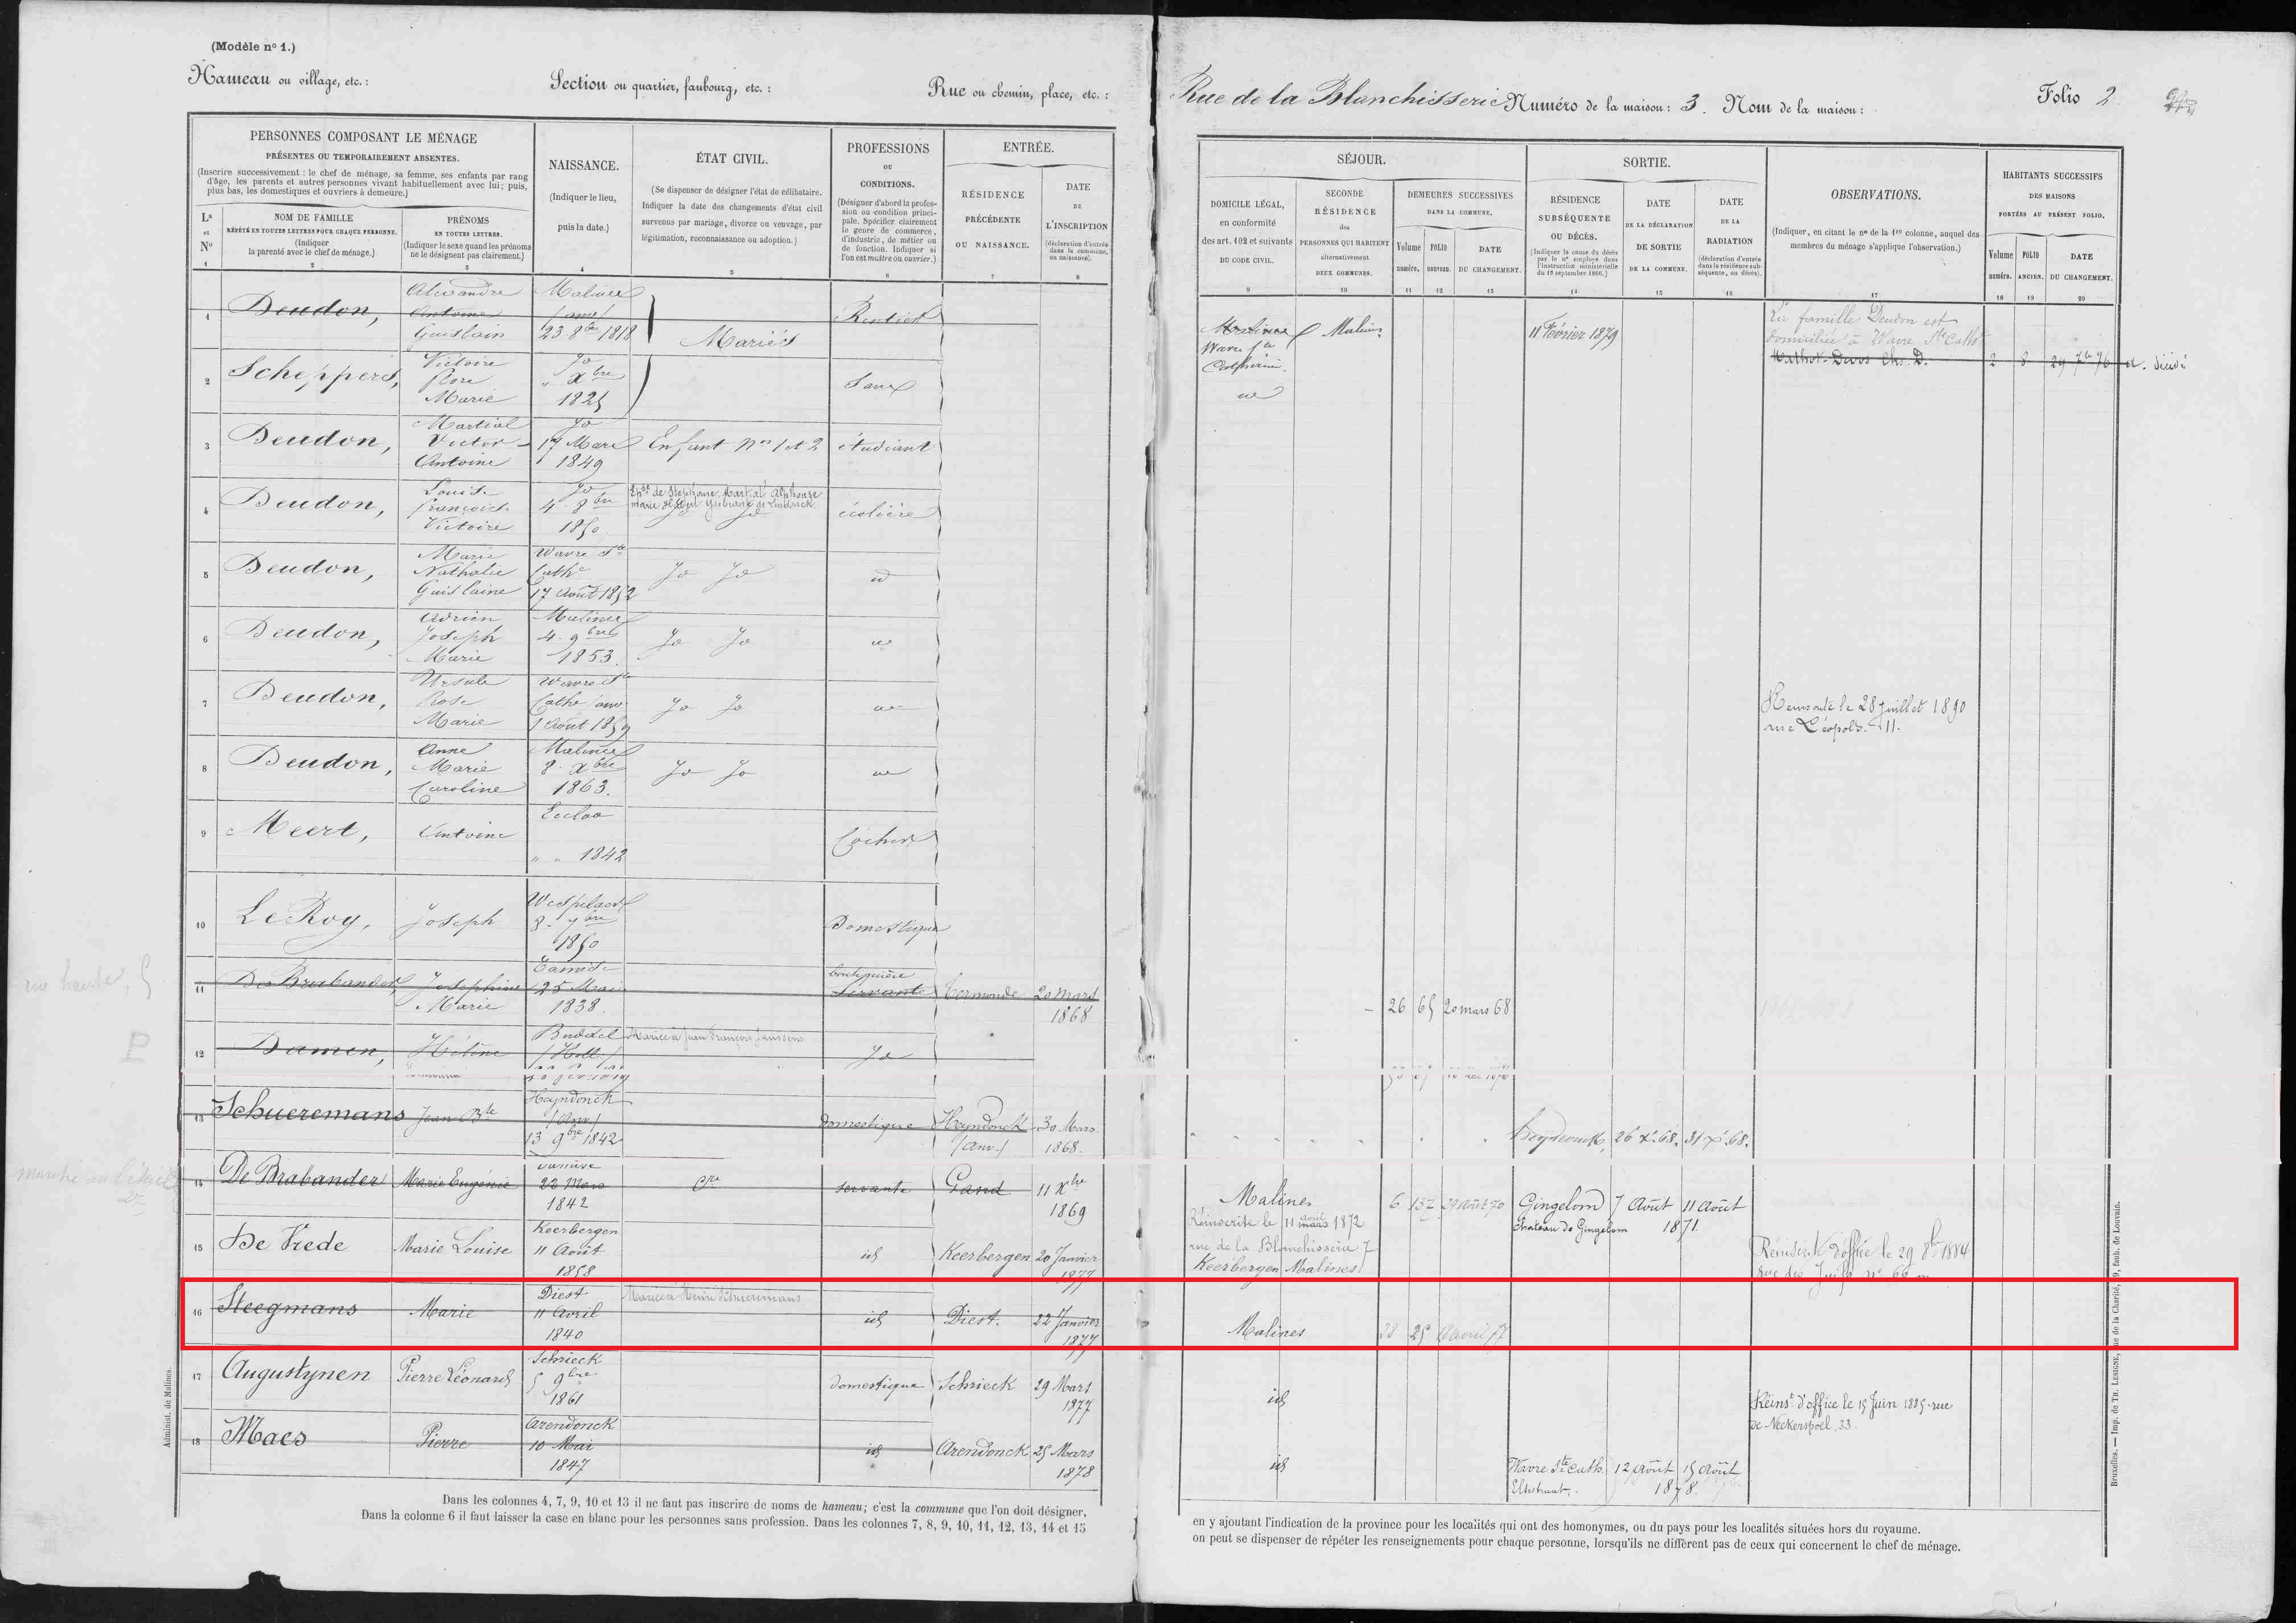 (Modèle nº 1.)
Hameau ou village, etc.: Section ou quartier, faubourg, etc.: Rue ou chemin, place, etc.: Rue de la Blanchisserie Numéro de la maison: 3. Nom de la maison: Folio 2
PERSONNES COMPOSANT LE MÉNAGE
PRÉSENTES OU TEMPORAIREMENT ABSENTES.
(Inscrire successivement: le chef de ménage, sa femme, ses enfants par rang
d'âge, les parents et autres personnes vivant habituellement avec lui; puis,
plus bas, les domestiques et ouvriers à demeure.)
La et Nº
1
NOM DE FAMILLE
RÉPÉTÉ EN TOUTES LETTRES POUR CHAQUE PERSONNE.
(Indiquer
la parenté avec le chef de ménage.)
2
PRÉNOMS
EN TOUTES LETTRES.
(Indiquer le sexe quand les prénoms
ne le désignent pas clairement.)
3
NAISSANCE.
(Indiquer le lieu,
puis la date.)
4
ÉTAT CIVIL.
(Se dispenser de désigner l'état de célibataire.
Indiquer la date des changements d'état civil
survenus par mariage, divorce ou veuvage, par
légitimation, reconnaissance ou adoption.)
5
PROFESSIONS
OU
CONDITIONS.
(Désigner d'abord la profes-
sion ou condition princi-
pale. Spécifier clairement
le genre de commerce,
d'industrie, de métier ou
de fonction. Indiquer si
l'on est maître ou ouvrier.)
6
ENTRÉE.
RÉSIDENCE
PRÉCÉDENTE
OU NAISSANCE.
7
DATE
DE
L'INSCRIPTION
(déclaration d'entrée
dans la commune,
ou naissance).
8
SÉJOUR.
DOMICILE LÉGAL,
en conformité
des art. 102 et suivants
DU CODE CIVIL.
9
SECONDE
RÉSIDENCE
des
PERSONNES QUI HABITENT
alternativement
DEUX COMMUNES.
10
DEMEURES SUCCESSIVES
DANS LA COMMUNE.
Volume numéro. FOLIO nouveau. DATE DU CHANGEMENT.
11 12 13
SORTIE.
RÉSIDENCE
SUBSÉQUENTE
OU DÉCÈS.
(Indiquer la cause du décès
par le nº employé dans
l'instruction ministérielle
du 19 septembre 1866.)
14
DATE
DE LA DÉCLARATION
DE SORTIE
DE LA COMMUNE.
15
DATE
DE LA
RADIATION
(déclaration d'entrée
dans la résidence sub-
séquente, ou décès).
16
OBSERVATIONS.
(Indiquer, en citant le nº de la 1re colonne, auquel des
membres du ménage s'applique l'observation.)
17
HABITANTS SUCCESSIFS
DES MAISONS
PORTÉES AU PRÉSENT FOLIO.
Volume numéro. FOLIO ANCIEN. DATE DU CHANGEMENT.
18 19 20
1 Deudon, Alexandre Antoine Guislain Malines 23 8bre 1818 Mariés Rentier Malines Wavre Ste Catherine Malines 11 Février 1879
La famille Deudon est
domiciliée à Wavre Ste Cath.
2 8 29 7bre 76
2 Scheppers, Victoire Flore Marie Xbre 1825
3 Deudon, Martial Victor Antoine 17 Mars 1849 Enfant Nos 1 et 2 étudiant
4 Deudon, Louise Françoise Victoire 4 8bre 1850 écolière
5 Deudon, Marie Nathalie Guislaine Wavre Ste Cathe 17 Août 1852
6 Deudon, Adrien Joseph Marie Malines 4 9bre 1853.
7 Deudon, Ursule Rose Marie Wavre Ste Cathe 1 Août 1859
Remonté le 28 Juillet 1890
rue Léopold. 11.
8 Deudon, Anne Marie Caroline Malines 8 Xbre 1863.
9 Meert, Antoine Eecloo " " 1842 Cocher
10 Le Roy, Joseph Wespelaer 8 7bre 1850 Domestique
11 De Brabander, Joséphine Marie Tamise 25 Mai 1838. boutiquière Servante Termonde 20 Mars 1868 26 65 20 mars 68
12 Damen, Hélène Buddel (Holl.) Mariée à Jean François Janssens
13 Schueremans Jean Bte Heyndonck (Anv.) 13 9bre 1842 Domestique Heyndonck (Anv.) 30 Mars 1868. Heyndonck, 26 Xe 68. 31 Xe 68.
14 De Brabander Marie Eugénie 22 Mars 1842 servante Gand 11 Xbre 1869 Malines 6 137 29 Août 70 Gingelom 7 Août 11 Août
Château de Gingelom 1871
Réinscrite le 11 avril mars 1872
rue de la Blanchisserie 7
15 De Vrede Marie Louise Keerbergen 11 Août 1858 id Keerbergen 20 Janvier 1877 Keerbergen Malines
Réinscrite d'office le 29 8bre 1884
rue des Juifs nº 66
16 Steegmans Marie Diest 11 Avril 1840 Mariée à Henri Schueremans id Diest. 22 Janvier 1877 Malines 28 25 18 avril 77
17 Augustynen Pierre Léonard Schrieck 5 9bre 1861 domestique Schrieck 29 Mars 1877 id
Réinst d'office le 15 Juin 1885 rue
de Neckerspoel, 33.
18 Maes Pierre Arendonck 10 Mai 1847 id Arendonck 25 Mars 1878 id Wavre Ste Cath. 12 Août 15 Août
1878.
Dans les colonnes 4, 7, 9, 10 et 13 il ne faut pas inscrire de noms de hameau; c'est la commune que l'on doit désigner,
Dans la colonne 6 il faut laisser la case en blanc pour les personnes sans profession. Dans les colonnes 7, 8, 9, 10, 11, 12, 13, 14 et 15
en y ajoutant l'indication de la province pour les localités qui ont des homonymes, ou du pays pour les localités situées hors du royaume.
on peut se dispenser de répéter les renseignements pour chaque personne, lorsqu'ils ne diffèrent pas de ceux qui concernent le chef de ménage.
Administ. de Malines.
Bruxelles. — Imp. de TH. LESIGNE, rue de la Charité, 9, faub. de Louvain.
rue haute, 5
P